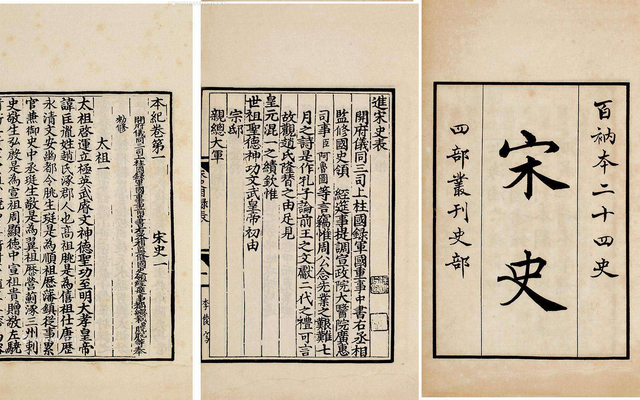 百衲本二十四史
宋史
四部叢刊史部
進宋史表
開府儀同三司上柱國錄軍國重事中書右丞相
監修國史領 經筵事提調宣政院大醫院廣惠
司事臣阿魯圖等言竊惟周公念先業之艱難七
月之詩是作孔子論前王之文獻二代之禮可言
故觀趙氏隆替之由足見
皇元混一之績欽惟
世祖聖德神功文武皇帝初由
宗邸
親總大軍
本紀卷第一 宋史一
開府儀同三司上柱國錄軍國重事
勑修
太祖一
太祖啓運立極英武睿文神德聖功至明大孝皇帝
諱匡胤姓趙氏涿郡人也高祖朓是爲僖祖仕唐歷
永清文安幽都令朓生珽是爲順祖歷藩鎮從事累
官兼御史中丞珽生敬是爲翼祖歷營薊涿三州刺
史敬生弘殷是爲宣祖周顯德中宣祖貴贈敬左驍